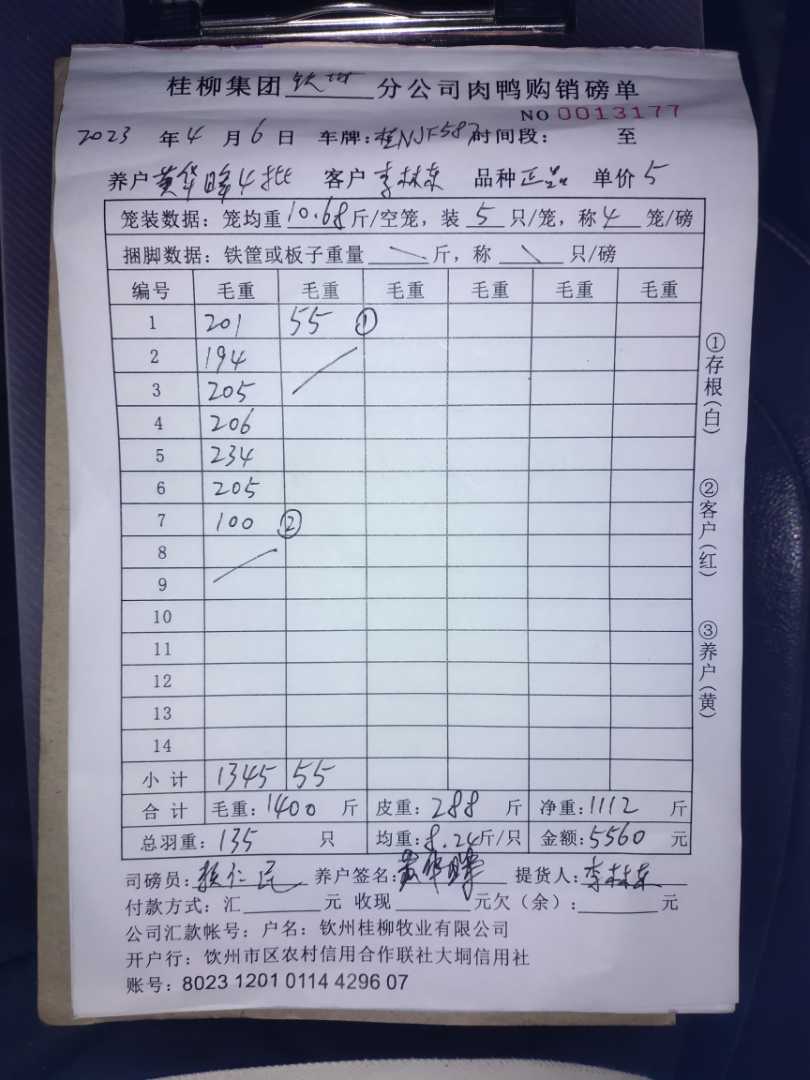 桂柳集团 钦州 分公司肉鸭购销磅单
NO 0013177
2023 年 4 月 6 日 车牌:桂NJF587 时间段: 至
养户 黄华 4批 客户 李林东 品种 正品 单价 5
笼装数据:笼均重 10.68 斤/空笼,装 5 只/笼,称 4 笼/磅
捆脚数据:铁筐或板子重量 斤,称 只/磅
编号 毛重 毛重 毛重 毛重 毛重 毛重
1 201 55 ①
2 194
3 205
4 206
5 234
6 205
7 100 ②
8
9
10
11
12
13
14
小计 1345 55
合计 毛重:1400 斤 皮重:288 斤 净重:1112 斤
总羽重:135 只 均重:8.24斤/只 金额:5560 元
司磅员: 仁民 养户签名:黄华 提货人:李林东
付款方式:汇 元 收现 元欠(余): 元
公司汇款帐号:户名:钦州桂柳牧业有限公司
开户行:钦州市区农村信用合作联社大垌信用社
账号:8023 1201 0114 4296 07
①存根(白)
②客户(红)
③养户(黄)